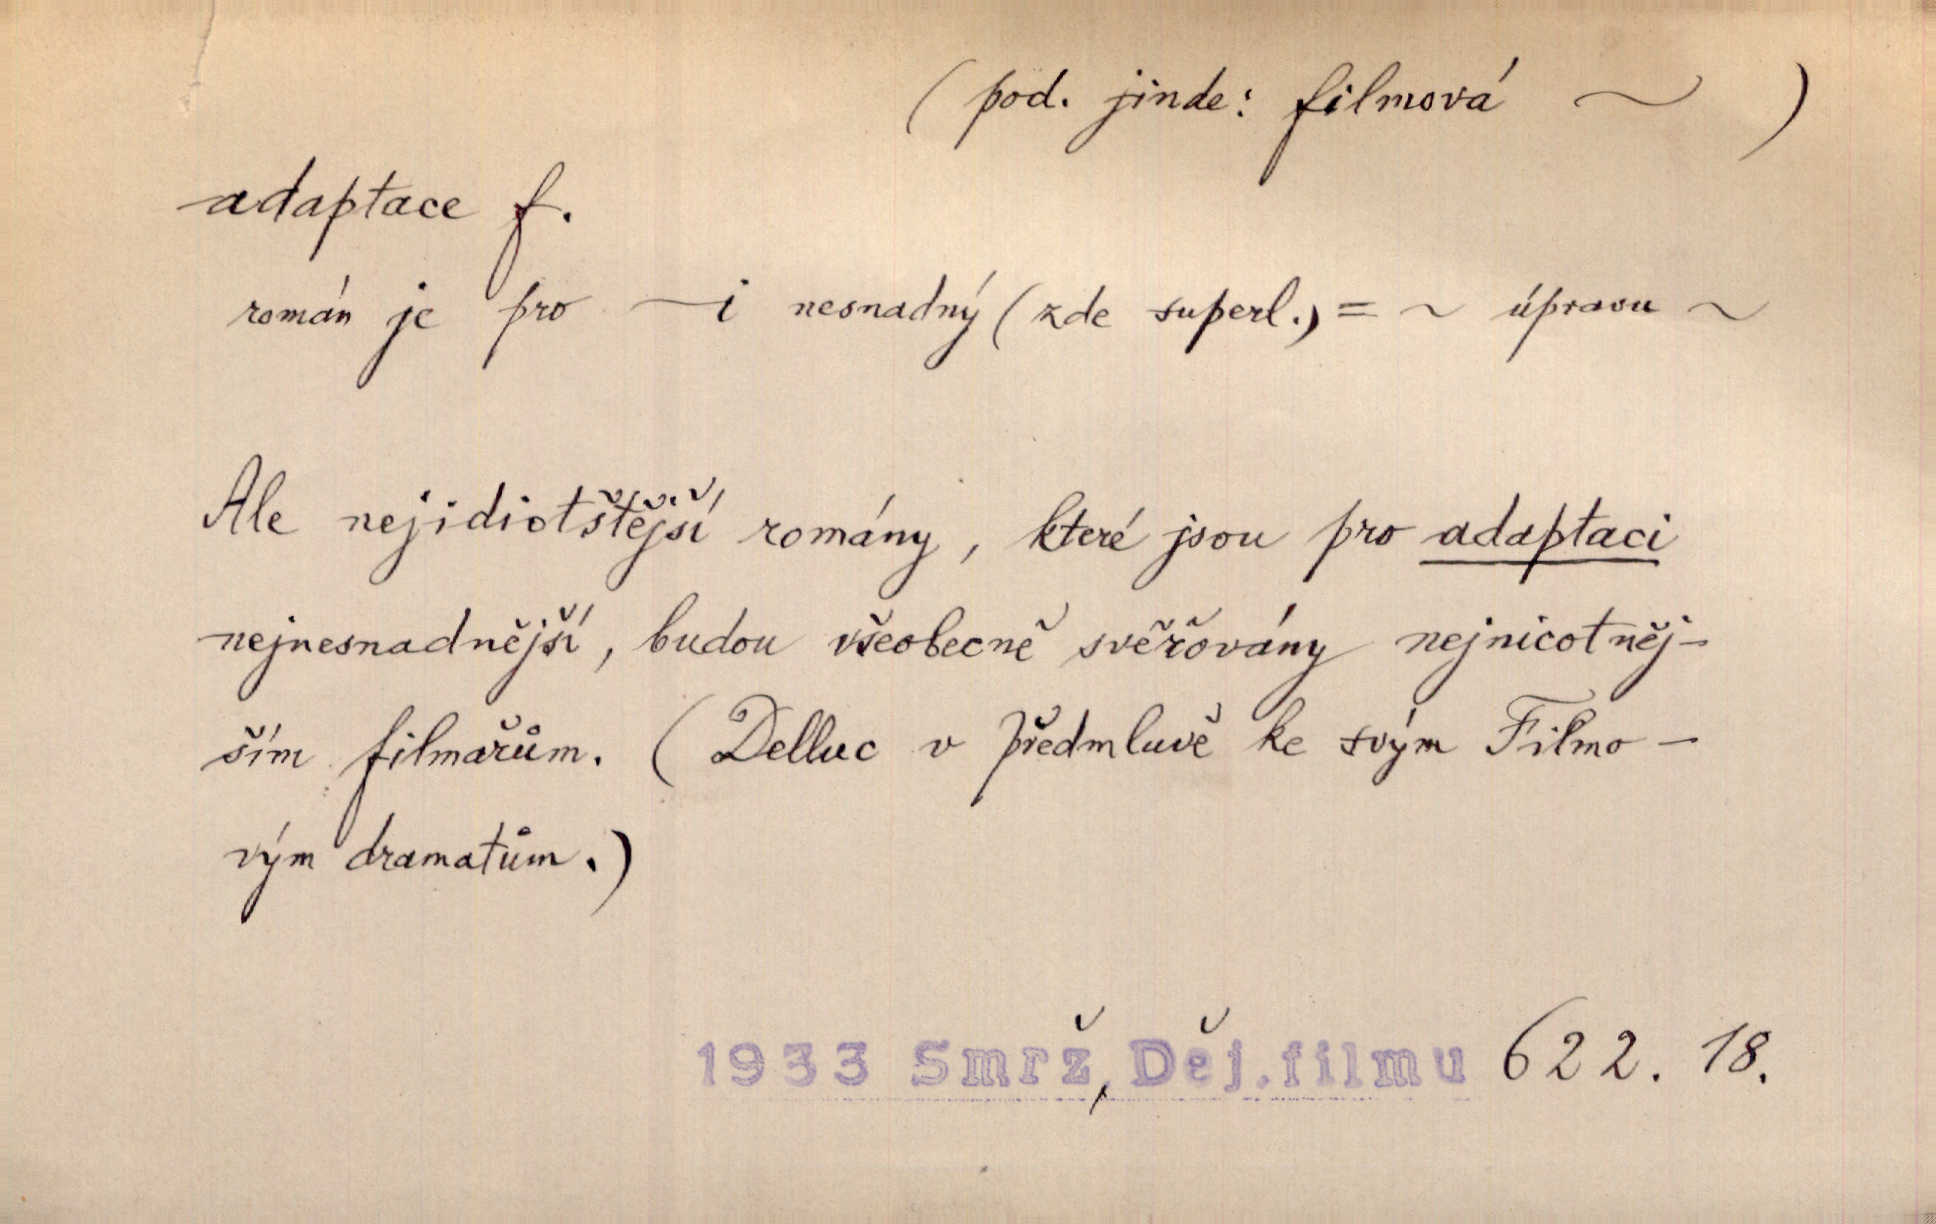 (pod. jinde: filmová ~ )
adaptace f.
román je pro ~i nesnadný (zde superl.) = ~ úpravu ~
Ale nejidiotštější romány, které jsou pro adaptaci
nejnesnadnější, budou všeobecně svěřovány nejnicotněj-
ším filmařům. (Delluc v předmluvě ke svým Filmo-
vým dramatům.)
1933 Smrž, Děj. filmu 622. 18.